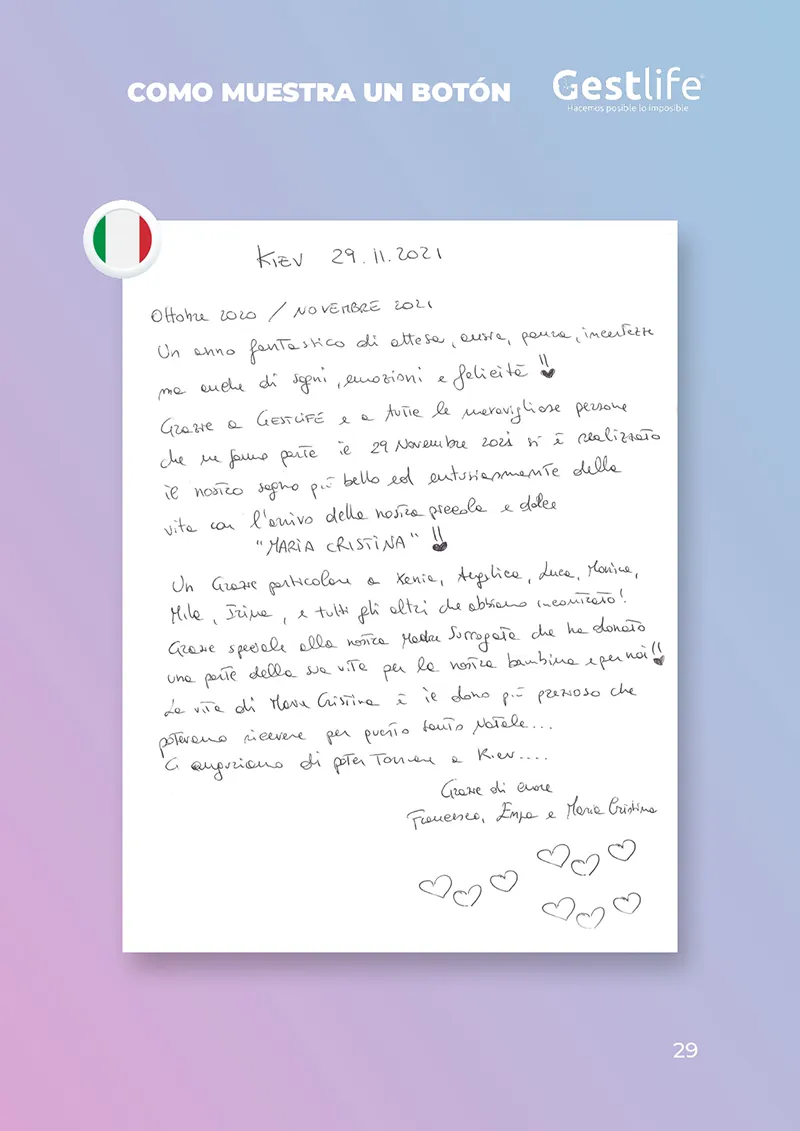 COMO MUESTRA UN BOTÓN
Gestlife
Hacemos posible lo imposible
KIEV 29.11.2021
Ottobre 2020 / NOVEMBRE 2021
Un anno fantastico di attesa, ansia, paura, incertezze
ma anche di sogni, emozioni e felicità!!
Grazie a GESTLIFE e a tutte le meravigliose persone
che ne fanno parte il 29 Novembre 2021 si è realizzato
il nostro sogno più bello ed entusiasmante della
vita con l'arrivo della nostra piccola e dolce
"MARIA CRISTINA"!!
Un Grazie particolare a Xenia, Angelica, Luca, Monica,
Mila, Irina, e tutti gli altri che abbiamo incontrato!
Grazie speciale alla nostra Madre Surrogata che ha donato
una parte della sua vita per la nostra bambina e per noi!!
La vita di Maria Cristina è il dono più prezioso che
potevamo ricevere per questo santo Natale...
Ci auguriamo di poter Tornare a Kiev....
Grazie di cuore
Francesco, Enza e Maria Cristina
29